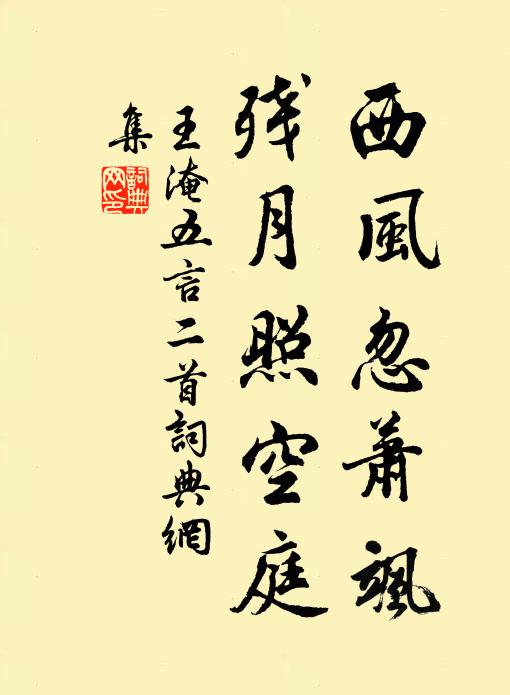 西風忽蕭颯
残月照空庭
王淹五言二首詞典網
集
詞典网印